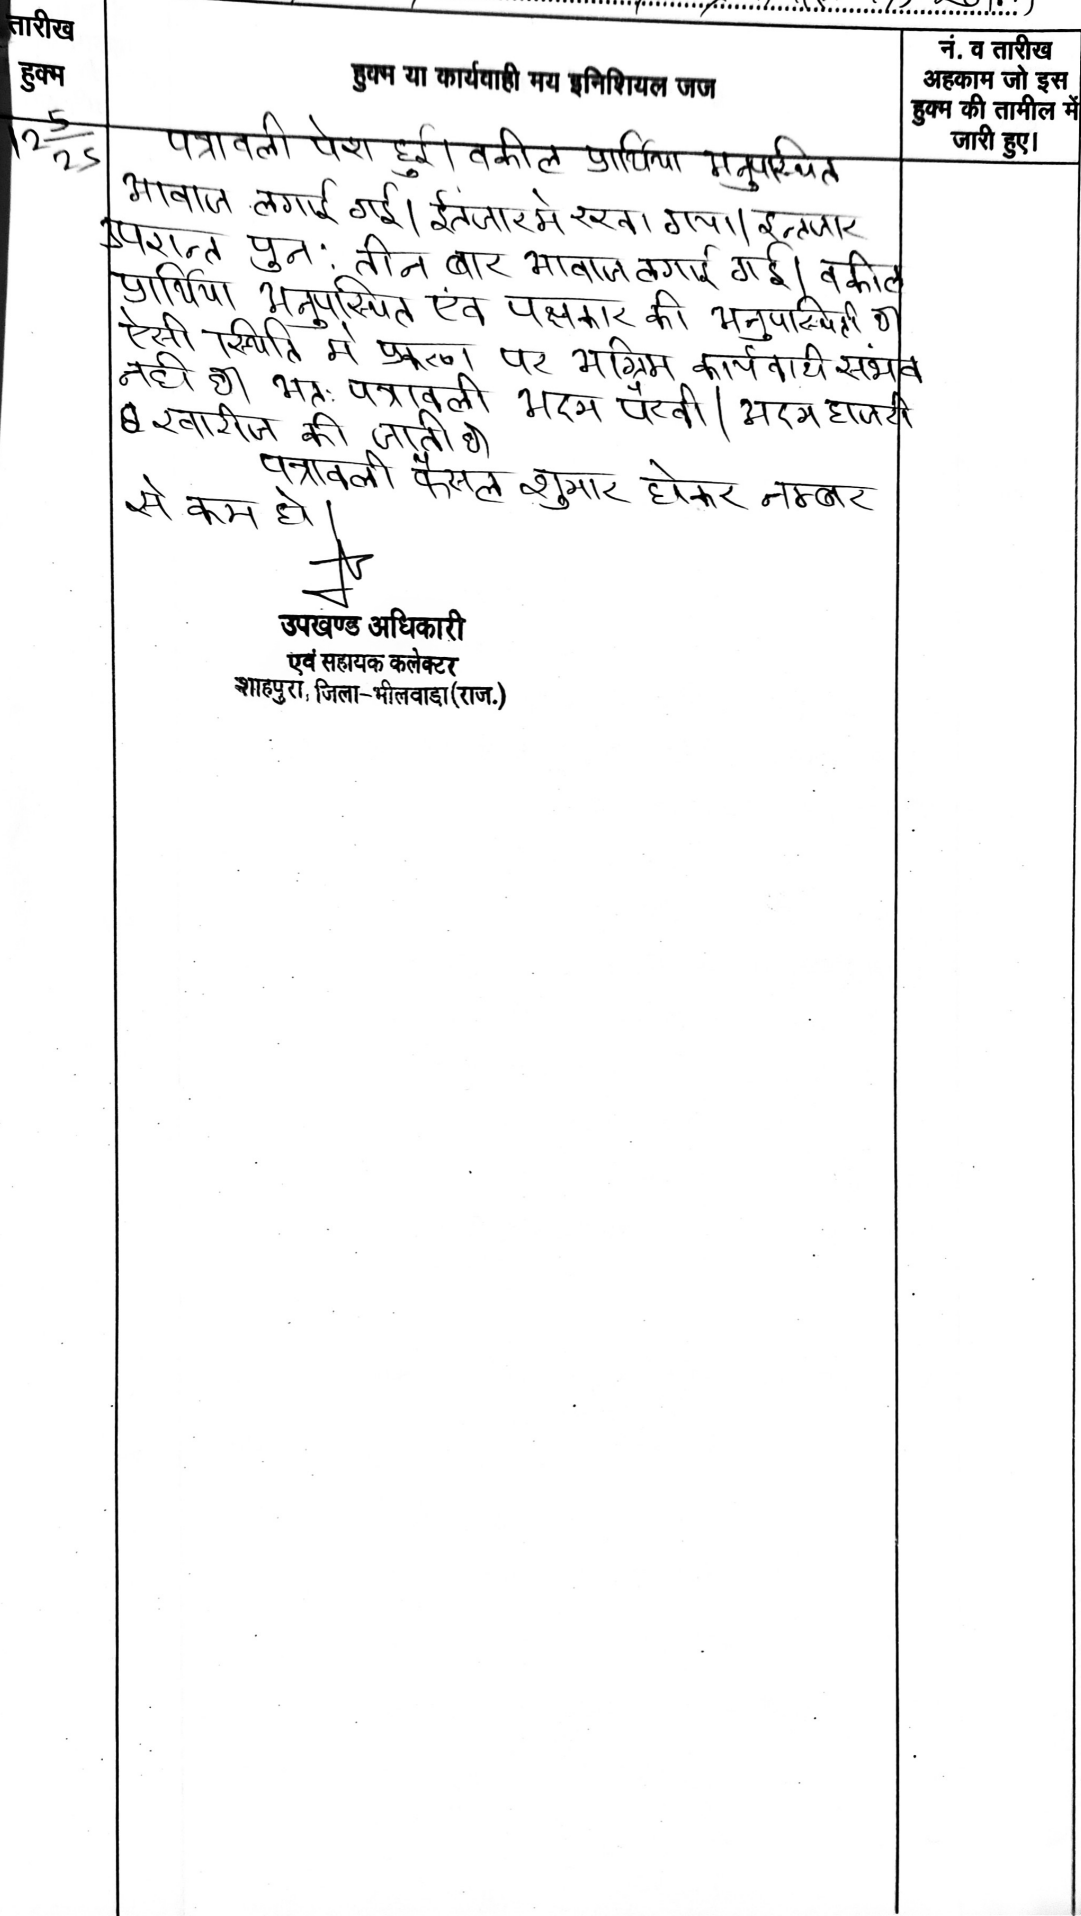 तारीख
हुक्म
हुक्म या कार्यवाही मय इनिशियल जज
नं. व तारीख
अहकाम जो इस
हुक्म की तामील में
जारी हुए।
12 5/25
पत्रावली पेश हुई। वकील प्रार्थिया अनुपस्थित
आवाज लगाई गई। ईतंजार मे रखा गया। इन्तजार
उपरान्त पुन: तीन बार आवाज लगाई गई। वकील
प्रार्थिया अनुपस्थित एंव पक्षकार की अनुपस्थिती है।
ऐसी स्थिति मे प्रकरण पर अग्रिम कार्यवाही संभव
नही है। अत: पत्रावली अदम पैरवी / अदम हाजरी
खारीज की जाती है।
पत्रावली फैसल शुमार होकर नम्बर
से कम हो।
उपखण्ड अधिकारी
एवं सहायक कलेक्टर
शाहपुरा, जिला-भीलवाडा (राज.)